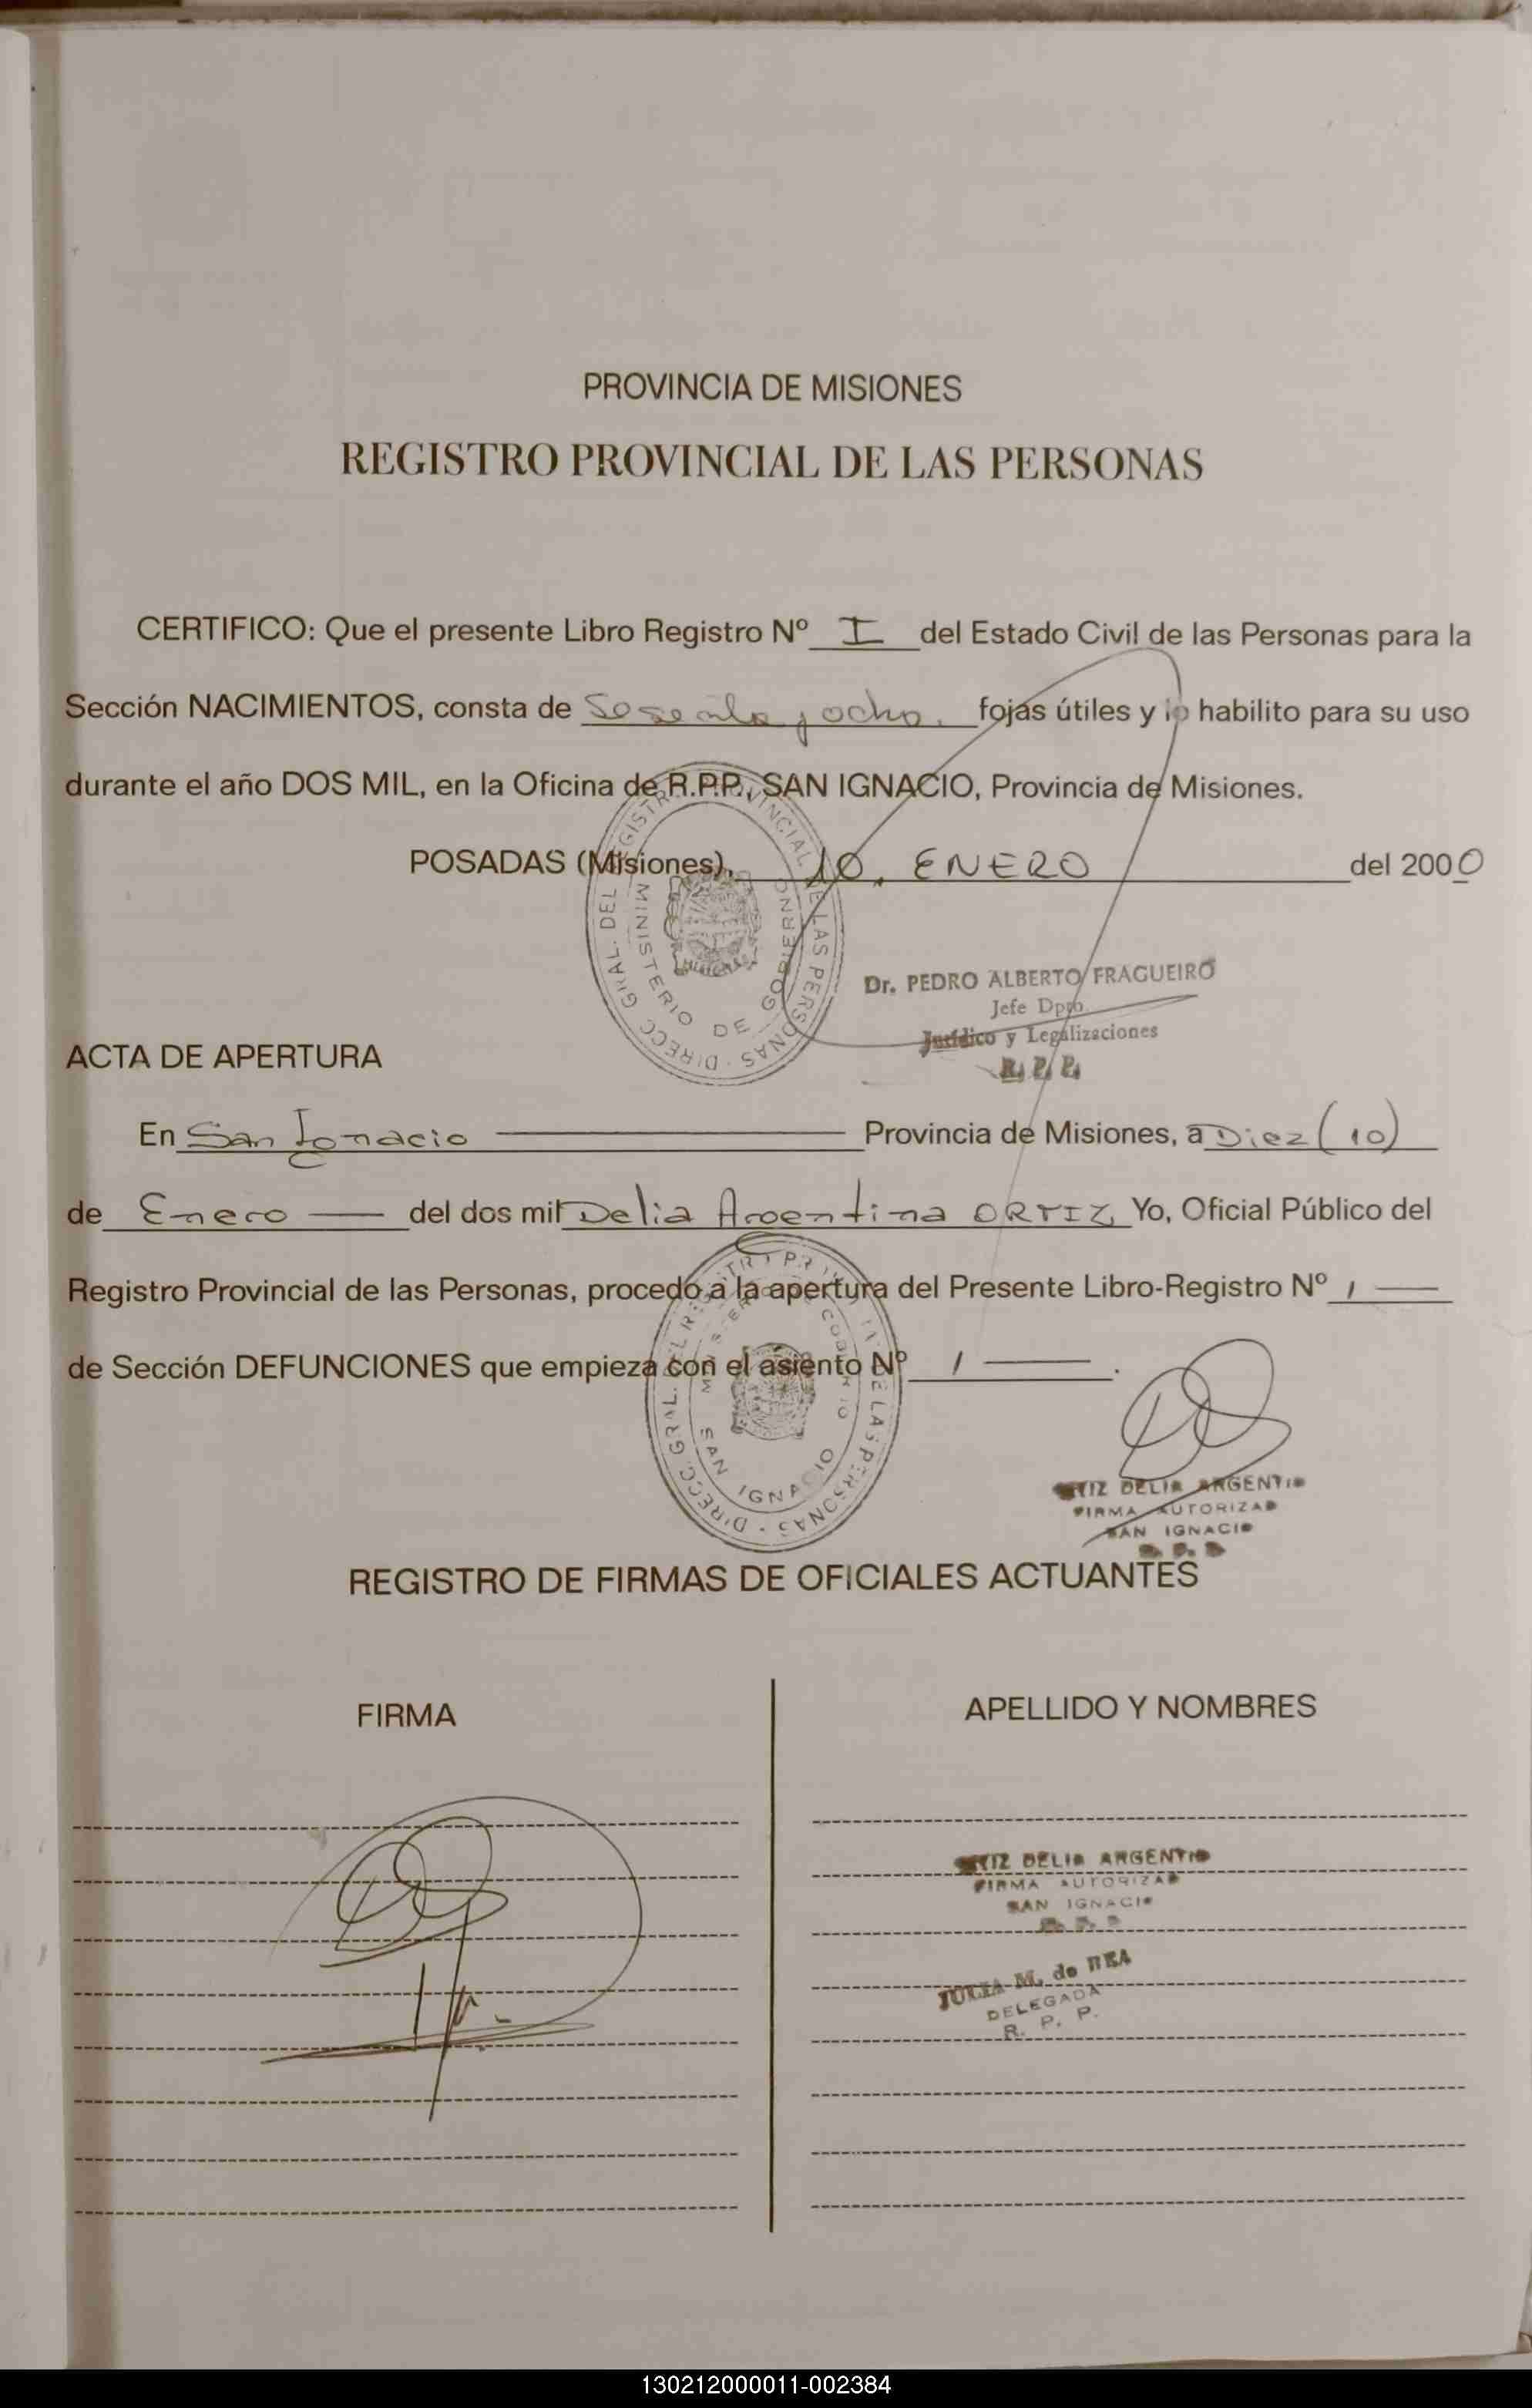 PROVINCIA DE MISIONES
REGISTRO PROVINCIAL DE LAS PERSONAS
CERTIFICO: Que el presente Libro Registro Nº I del Estado Civil de las Personas para la
Sección NACIMIENTOS, consta de Sesenta y ocho. fojas útiles y lo habilito para su uso
durante el año DOS MIL, en la Oficina de R.P.P. SAN IGNACIO, Provincia de Misiones.
POSADAS (Misiones), 10, ENERO del 2000
DIRECC. GRAL. DEL REGISTRO PROVINCIAL DE LAS PERSONAS
MINISTERIO DE GOBIERNO
Dr. PEDRO ALBERTO FRAGUEIRO
Jefe Dpto.
Jurídico y Legalizaciones
R. P. P.
ACTA DE APERTURA
En San Ignacio Provincia de Misiones, a Diez (10)
de Enero del dos mil Delia Argentina ORTIZ, Yo, Oficial Público del
Registro Provincial de las Personas, procedo a la apertura del Presente Libro-Registro Nº 1
de Sección DEFUNCIONES que empieza con el asiento Nº 1 .
DIRECC. GRAL. DEL REGISTRO PROVINCIAL DE LAS PERSONAS
MINISTERIO DE GOBIERNO
SAN IGNACIO
DELIA ARGENTI
FIRMA AUTORIZAD
SAN IGNACIO
REGISTRO DE FIRMAS DE OFICIALES ACTUANTES
FIRMA
APELLIDO Y NOMBRES
DELIA ARGENTI
FIRMA AUTORIZAD
SAN IGNACIO
JULIA M. de REA
DELEGADA
R. P. P.
130212000011-002384